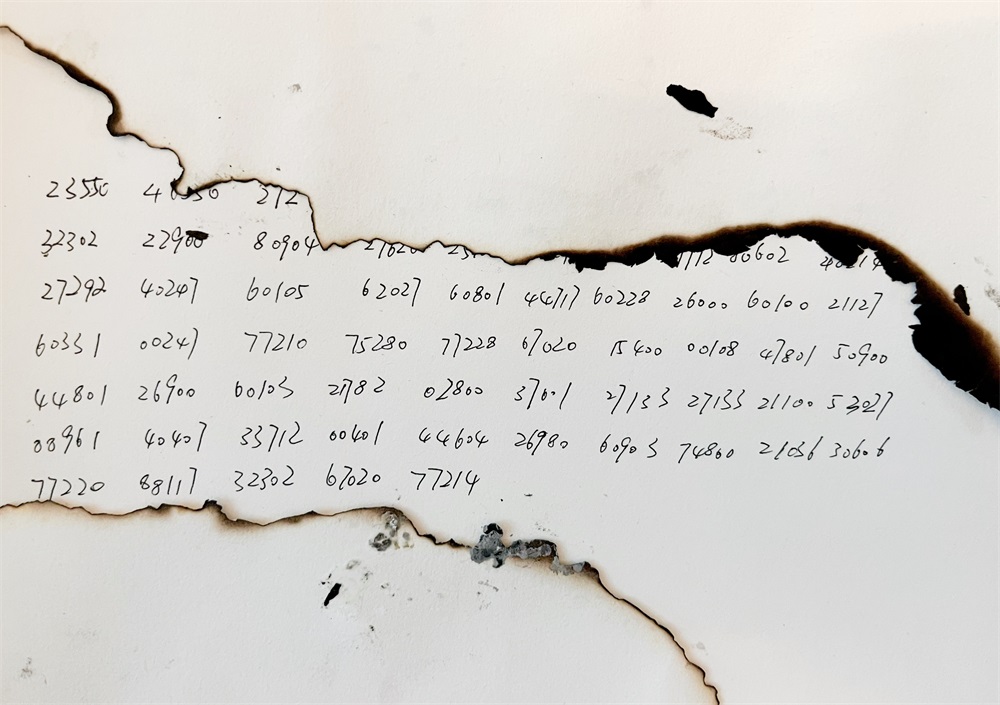 23550
32302 80904 00602
27292 40247 60105 62027 60801 44717 60228 26000 60100 21127
60331 00247 77210 75280 77228 67020 15400 00108 47801 50900
44801 26900 60103 21782 02800 37601 27133 27133 21100 53027
00961 40407 33712 00401 44604 26980 60903 74800 21036 30606
77220 88117 32302 67020 77214